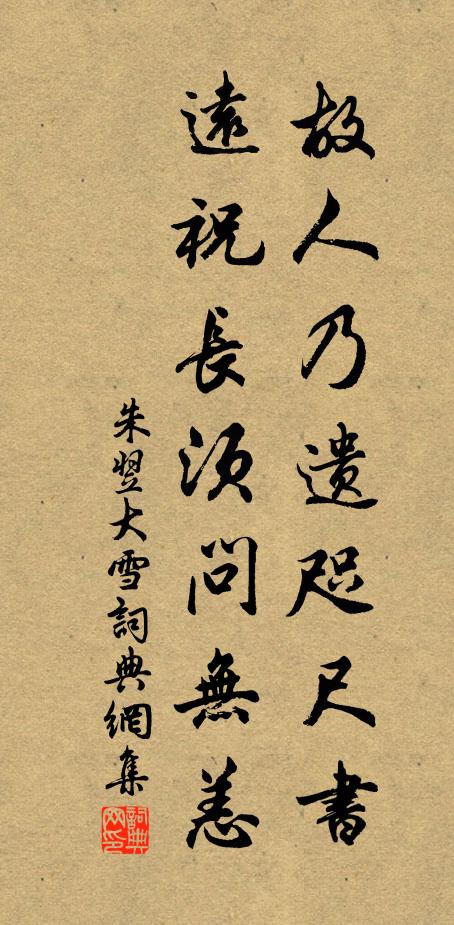 故人乃遺咫尺書
遠祝長須問無恙
朱翌大雪詞典網集
詞典网印